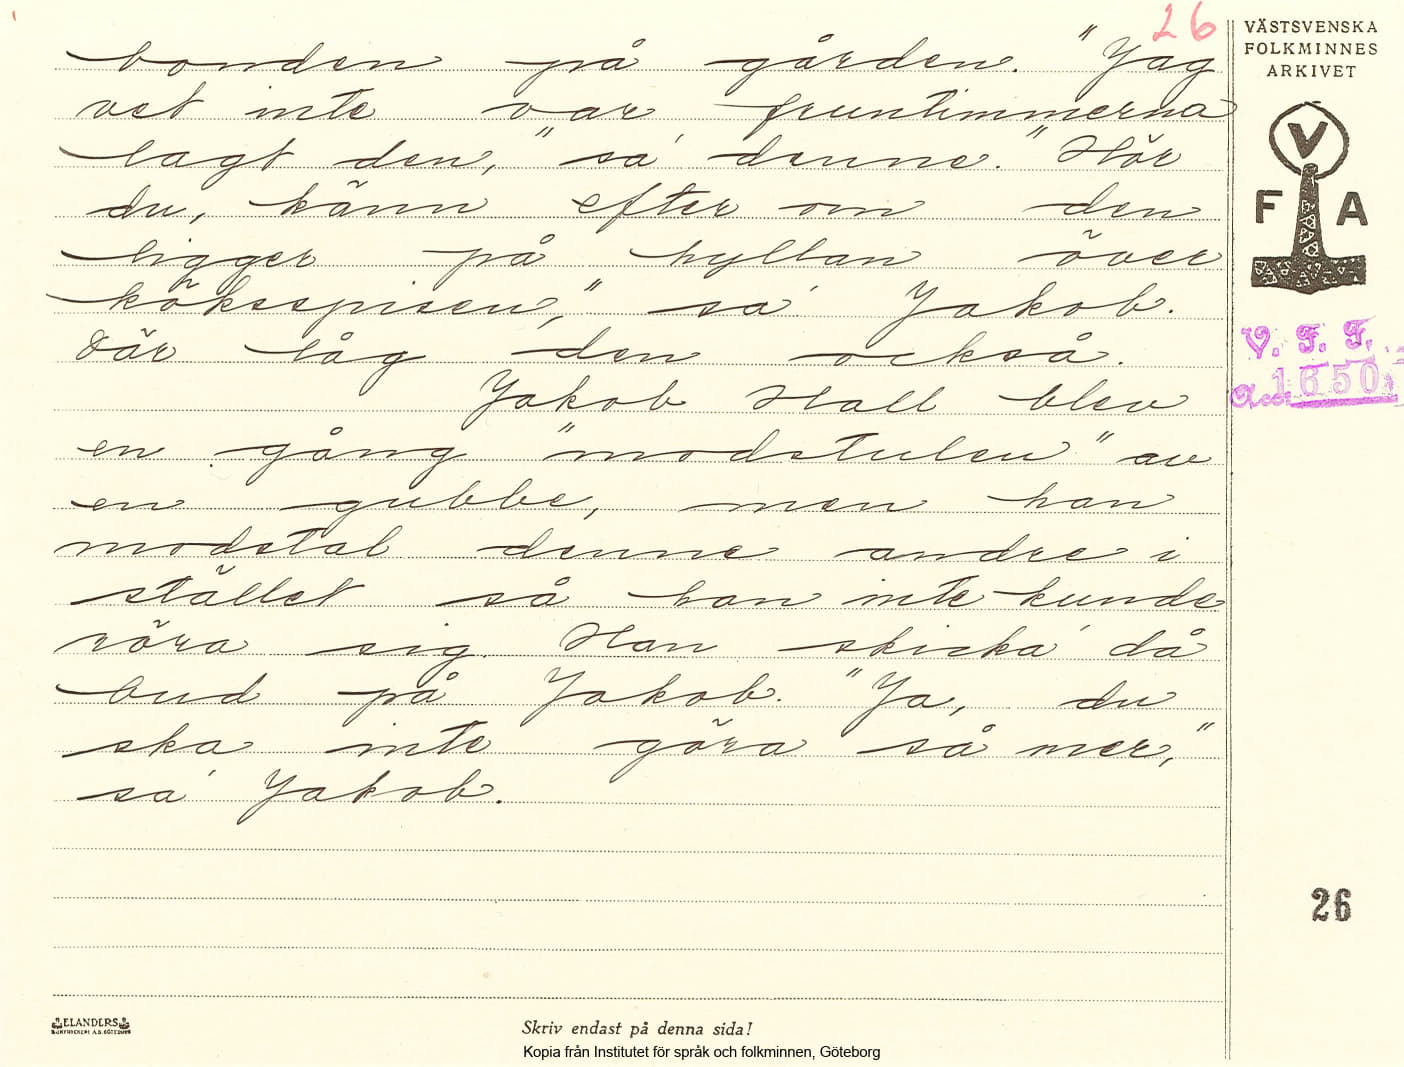 26
bonden på gården. "Jag
vet inte var fruntimmerna
lagt den," sa' denne. "Hör
du, känn efter om den
ligger på hyllan över
köksspisen," sa' Jakob.
Där låg den också.
Jakob Hall blev
en gång "modstulen" av
en gubbe, men han
modstal denne andre i
stället så han inte kunde
röra sig. Han skicka' då
bud på Jakob. "Ja, du
ska inte göra så mer,"
sa' Jakob.
VÄSTSVENSKA
FOLKMINNES
ARKIVET
V
F A
V. F. F.
Acc. 1650
26
ELANDERS
BOKTRYCKERI A.B. GÖTEBORG
Skriv endast på denna sida!
Kopia från Institutet för språk och folkminnen, Göteborg